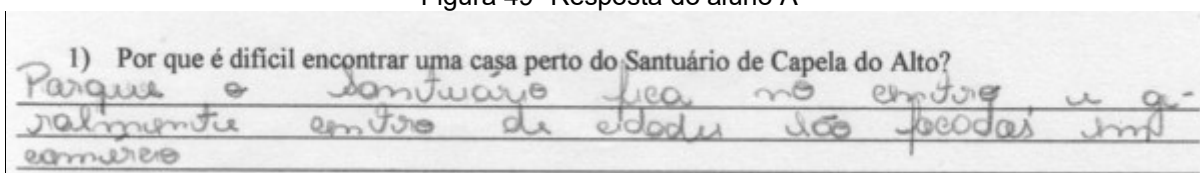 Figura 49- Resposta do aluno A
1) Por que é difícil encontrar uma casa perto do Santuário de Capela do Alto?
Parque o santuário fica no centro e ge-
ralmente centro de cidades são focadas em
comércio